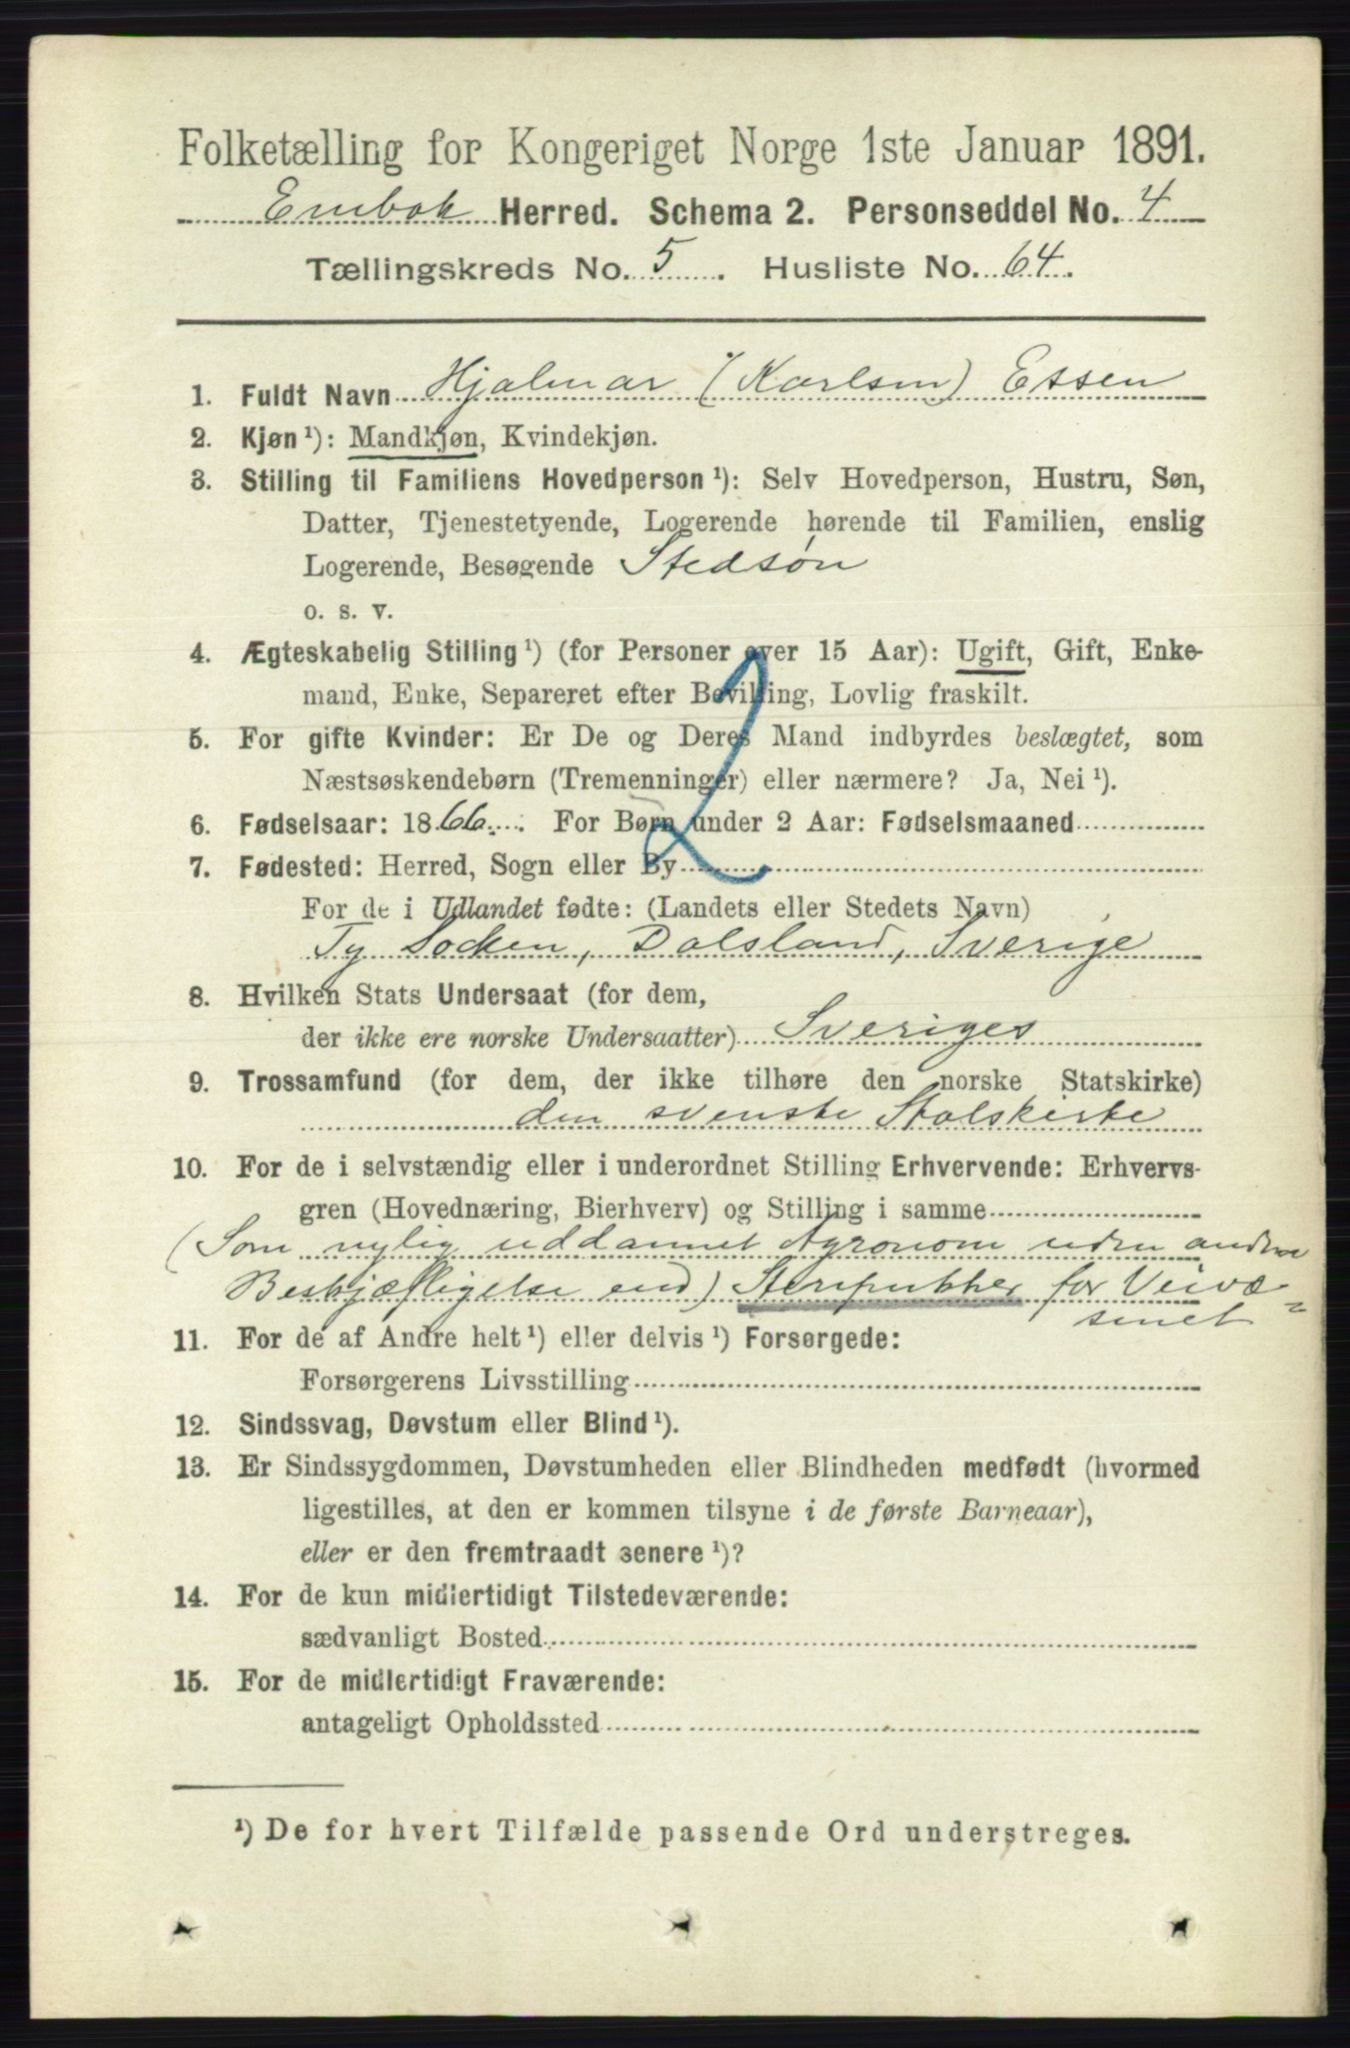 Folketælling for Kongeriget Norge 1ste Januar 1891.
Enebak Herred. Schema 2. Personseddel No. 4
Tællingskreds No. 5. Husliste No. 64.
1. Fuldt Navn Hjalmar (Karlsen) Essen
2. Kjøn ¹): Mandkjøn, Kvindekjøn.
3. Stilling til Familiens Hovedperson ¹): Selv Hovedperson, Hustru, Søn,
Datter, Tjenestetyende, Logerende hørende til Familien, enslig
Logerende, Besøgende Stedsøn
o. s. v.
4. Ægteskabelig Stilling ¹) (for Personer over 15 Aar): Ugift, Gift, Enke-
mand, Enke, Separeret efter Bevilling, Lovlig fraskilt.
5. For gifte Kvinder: Er De og Deres Mand indbyrdes beslægtet, som
Næstsøskendebørn (Tremenninger) eller nærmere? Ja, Nei ¹).
6. Fødselsaar: 1866. For Børn under 2 Aar: Fødselsmaaned
7. Fødested: Herred, Sogn eller By
2
For de i Udlandet fødte: (Landets eller Stedets Navn)
Ty Socken, Dalsland, Sverige
8. Hvilken Stats Undersaat (for dem,
der ikke ere norske Undersaatter) Sveriges
9. Trossamfund (for dem, der ikke tilhøre den norske Statskirke)
den svenske Statskirke
10. For de i selvstændig eller i underordnet Stilling Erhvervende: Erhvervs-
gren (Hovednæring, Bierhverv) og Stilling i samme
(Som nylig uddannet Agronom uden anden
Beskjæftigelse end) Stenpukker for Veivæ=
senet
11. For de af Andre helt ¹) eller delvis ¹) Forsørgede:
Forsørgerens Livsstilling
12. Sindssvag, Døvstum eller Blind ¹).
13. Er Sindssygdommen, Døvstumheden eller Blindheden medfødt (hvormed
ligestilles, at den er kommen tilsyne i de første Barneaar),
eller er den fremtraadt senere ¹)?
14. For de kun midlertidigt Tilstedeværende:
sædvanligt Bosted
15. For de midlertidigt Fraværende:
antageligt Opholdssted
¹) De for hvert Tilfælde passende Ord understreges.